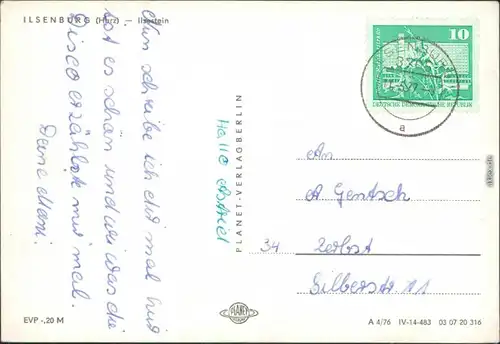 ILSENBURG (Harz) — Ilsestein
Hallo Astrid
Nun schreibe ich dir mal hier
ist es schön und wie war die
Disco erzählst mir mal.
Deine Mami.
EVP -,20 M
PLANET-VERLAG BERLIN
PLANET
10
DEUTSCHE DEMOKRATISCHE REPUBLIK
a
An
A. Gentsch
34 Zerbst
Silberstr 11
A 4/76 IV-14-483 03 07 20 316